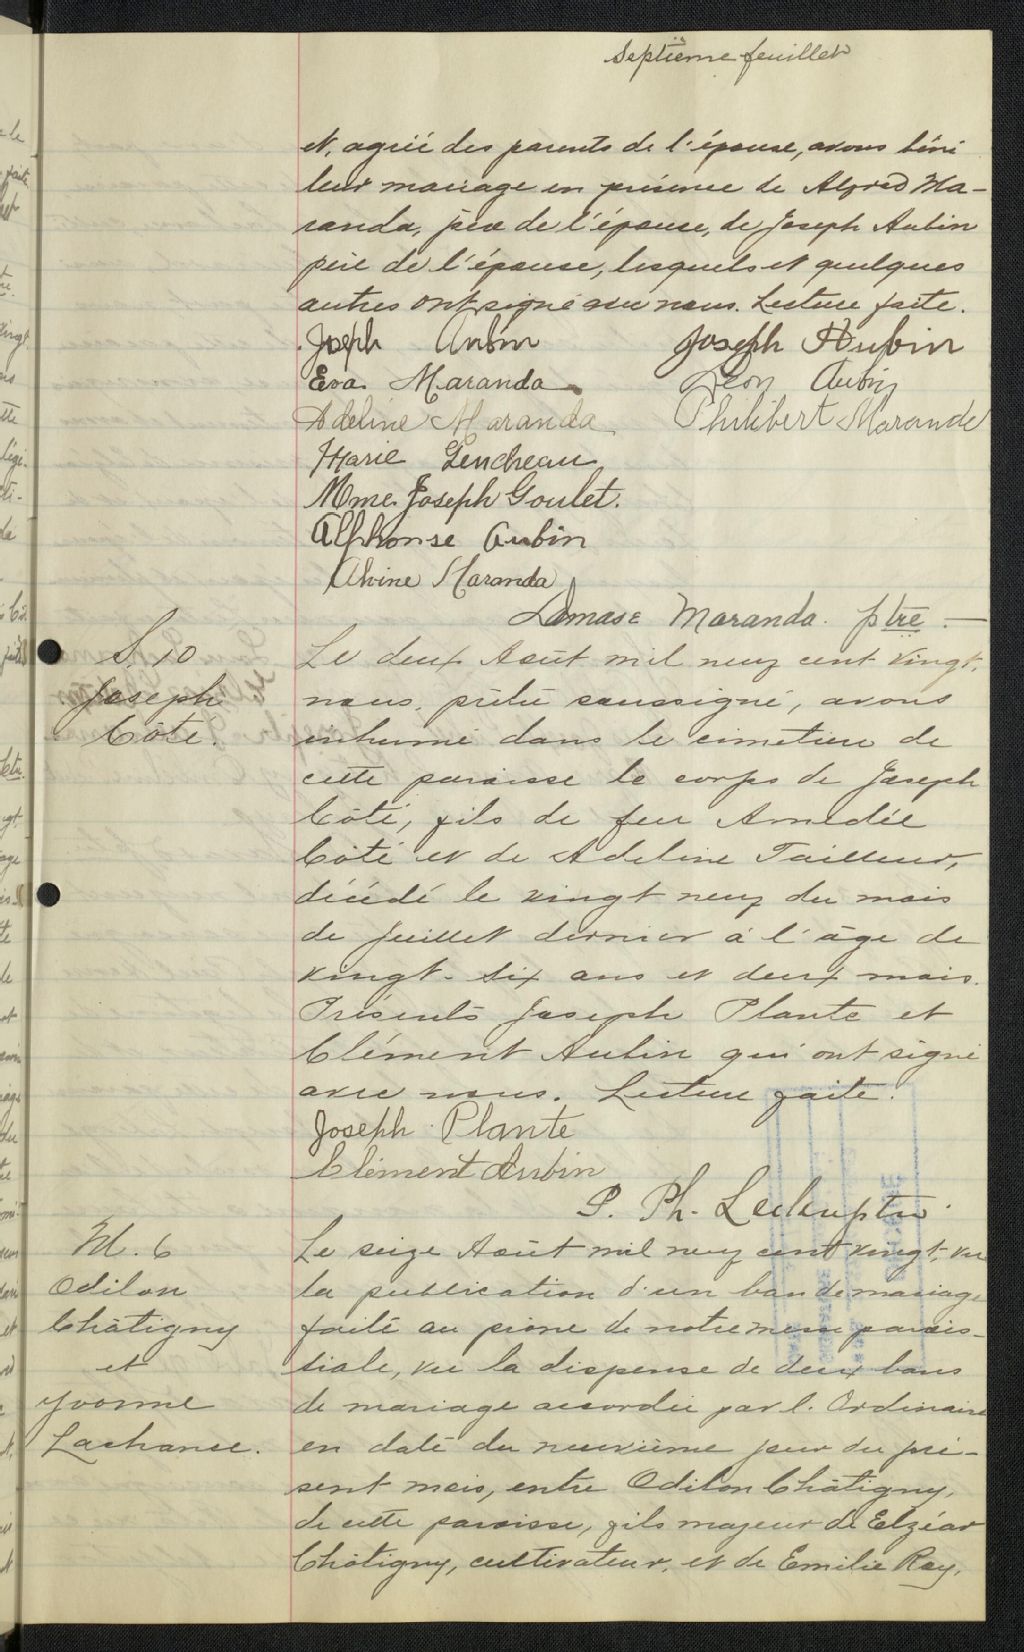 Septième feuillet
et, agréé des parents de l'épouse, avons béni
leur mariage en présence de Alfred Ma-
randa, père de l'épouse, de Joseph Aubin
père de l'épouse, lesquels et quelques
autres ont signé avec nous. Lecture faite.
Joseph Aubin Joseph Aubin
Eva Maranda Léon Aubin
Adeline Maranda Philibert Marande
Marie Gendreau
Mme. Joseph Goulet.
Alphonse Aubin
Alvine Maranda
Damase Maranda. ptre
S. 10
Joseph
Côté.
Le deux Août mil neuf cent vingt,
nous, prêtre soussigné, avons
inhumé dans le cimetière de
cette paroisse le corps de Joseph
Côté, fils de feu Amédée
Côté et de Adeline Tailleur,
décédé le vingt neuf du mois
de Juillet dernier à l'âge de
vingt-six ans et deux mois.
Présents Joseph Plante et
Clément Aubin qui ont signé
avec nous. Lecture faite.
Joseph Plante
Clément Aubin
P. Ph.
M. 6
Odilon
Châtigny
et
Yvonne
Lachance.
Le seize Août mil neuf cent vingt, vu
la publication d'un ban de mariage
faite au prône de notre messe parois-
siale, vu la dispense de deux bans
de mariage accordée par l'Ordinaire
en date du neuvième jour du pré-
sent mois, entre Odilon Châtigny,
de cette paroisse, fils majeur de Elzéar
Châtigny, cultivateur, et de Emilie Roy,